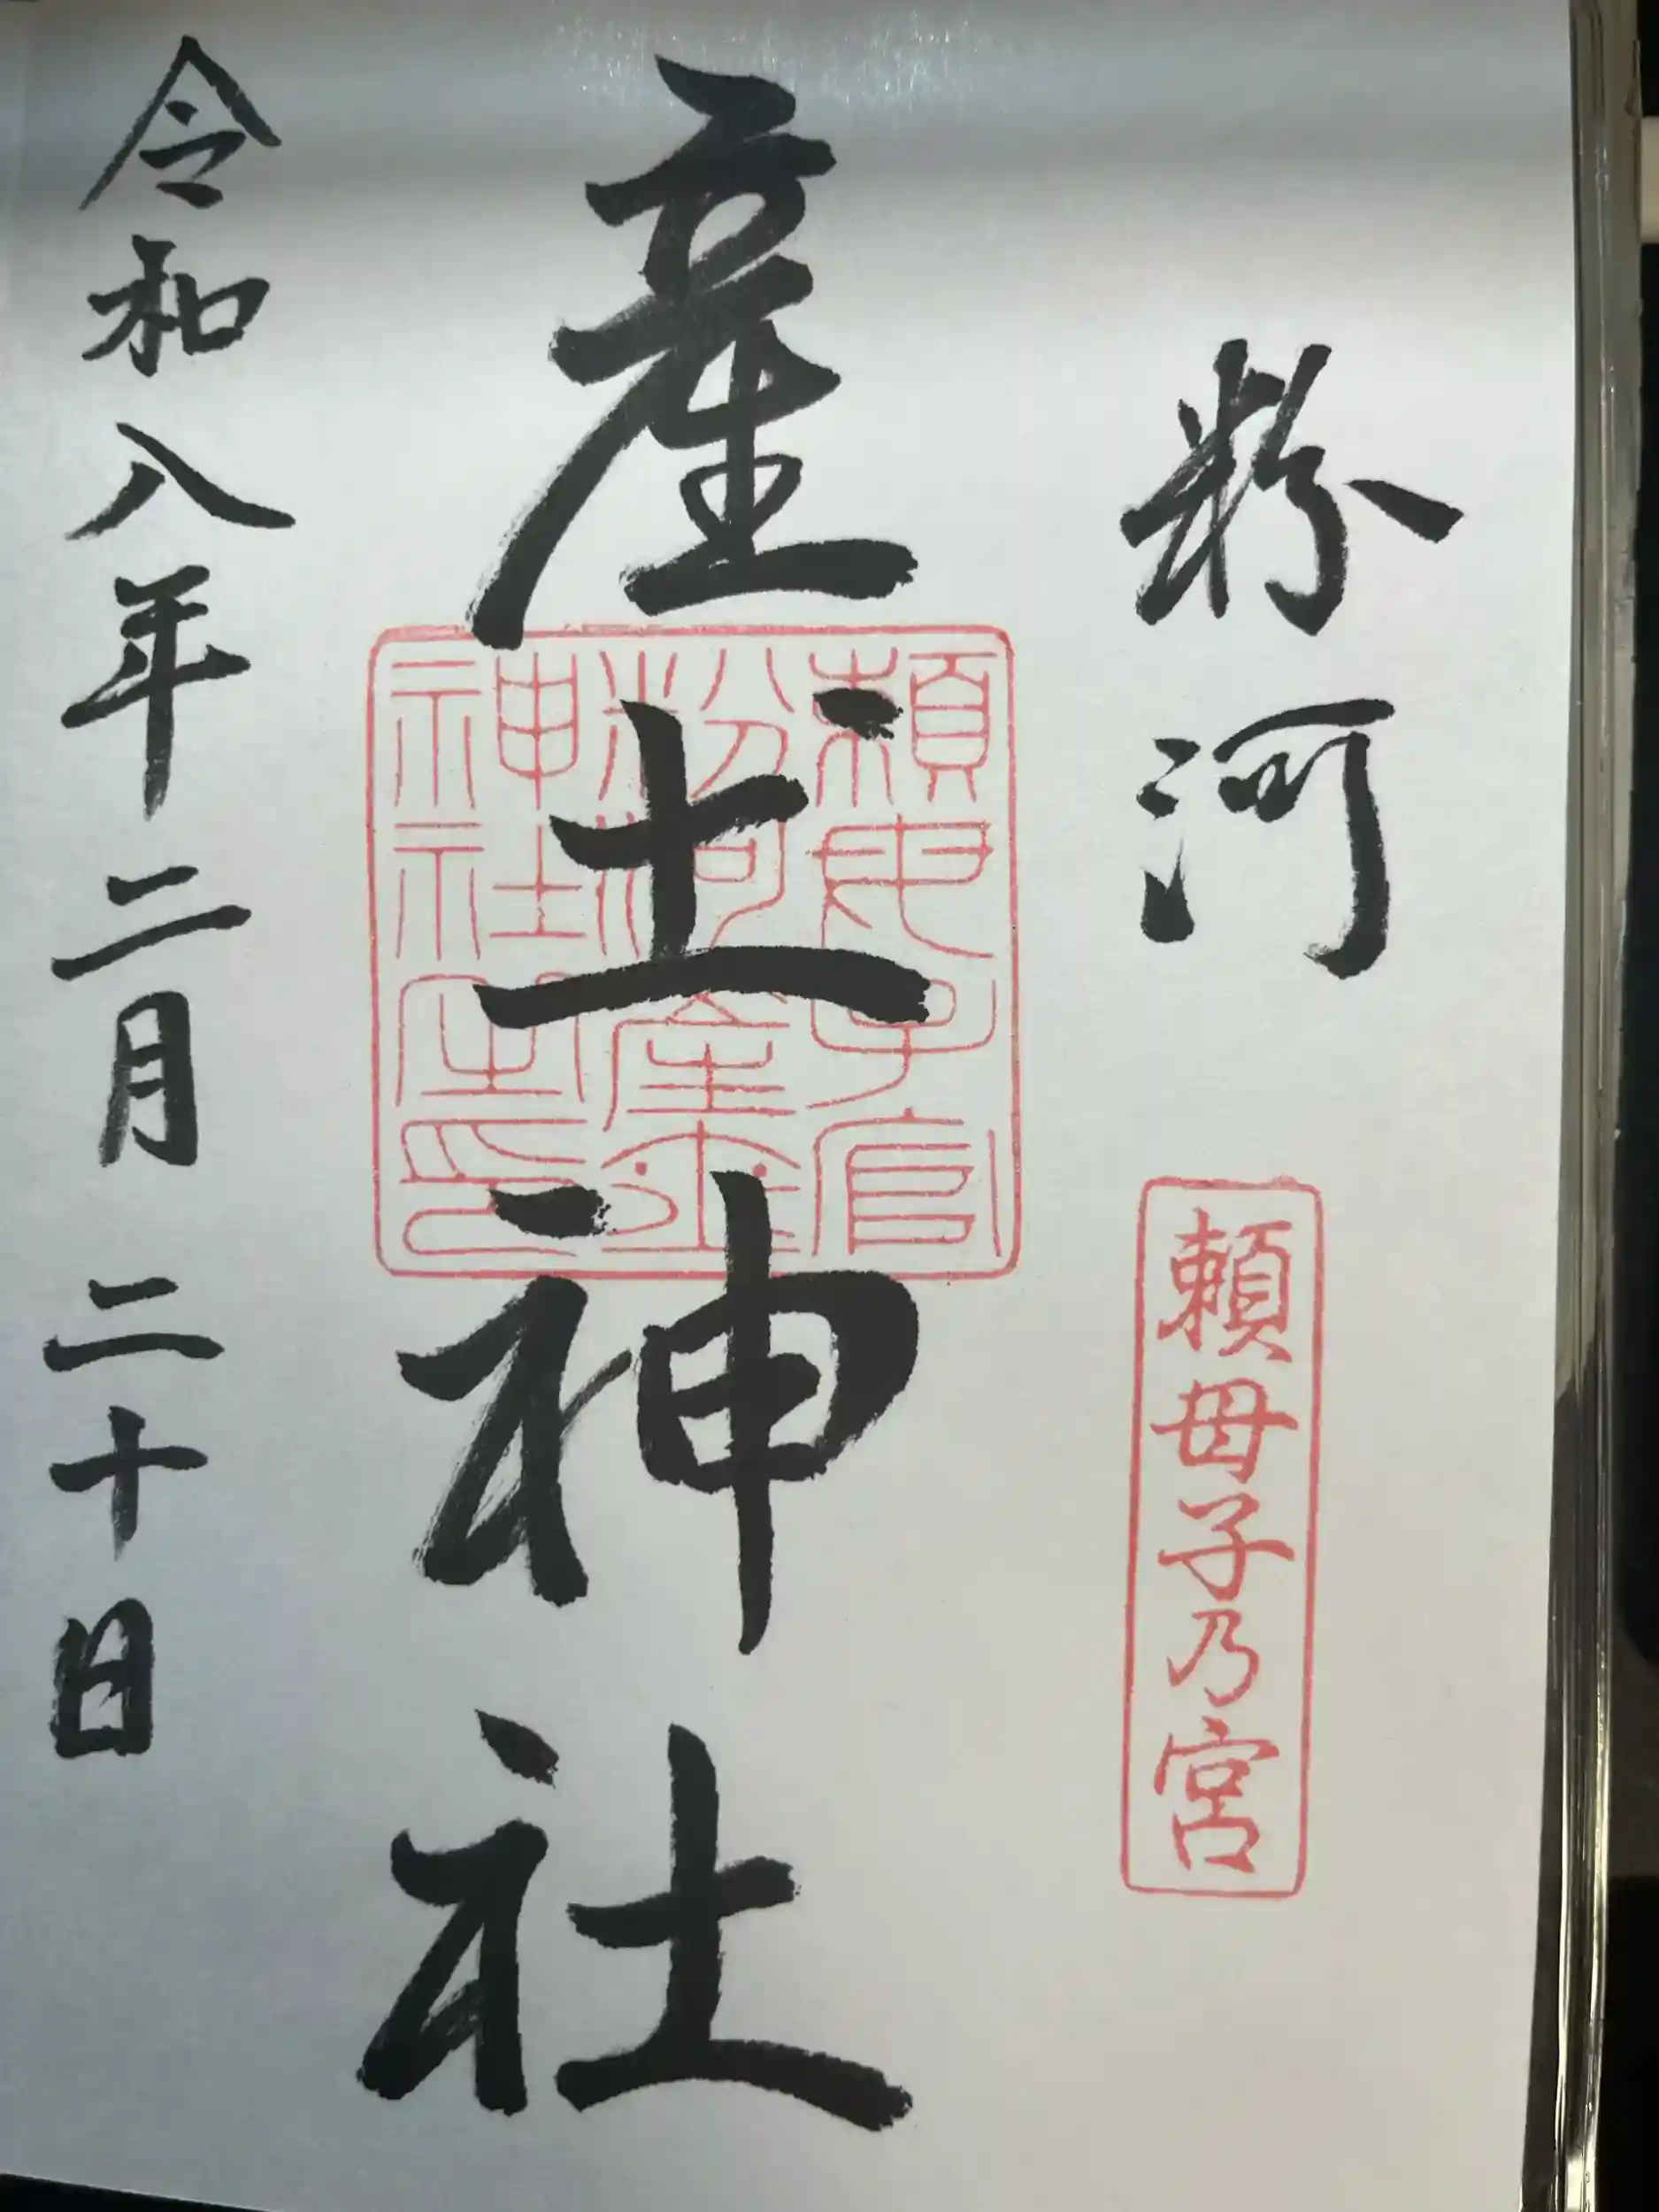 粉河
頼母子乃宮
産土神社
頼母子宮
粉河産土
神社之印
令和八年二月二十日